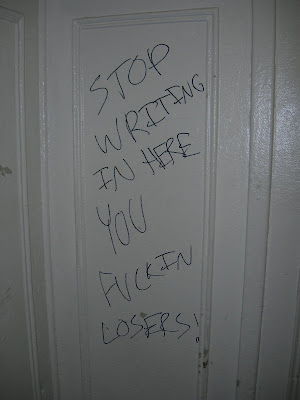 STOP
WRITING
IN HERE
YOU
FUCKIN
LOSERS!